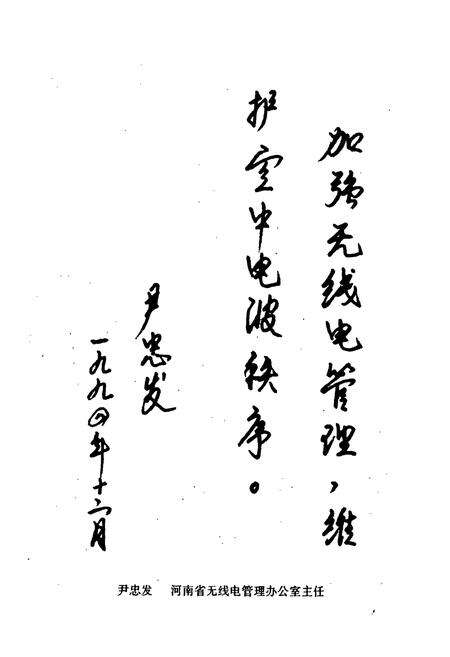 加强无线电管理，维
护空中电波秩序。
尹忠发
一九九四年十二月
尹忠发 河南省无线电管理办公室主任